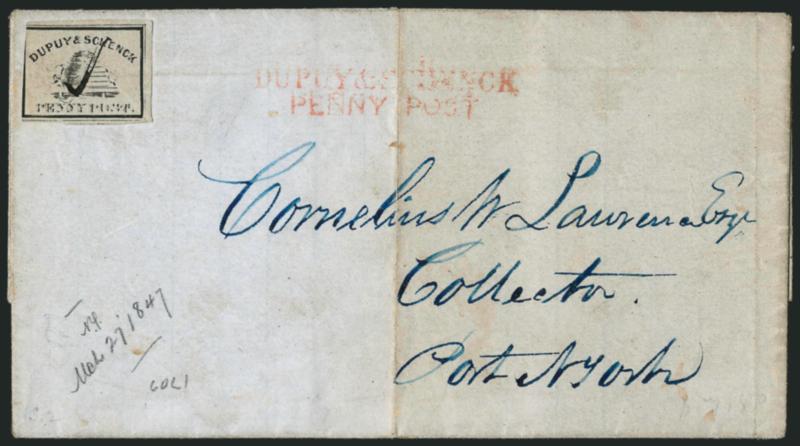 DUPUY & SCHENCK
PENNY POST.
DUPUY & SCHENCK
PENNY POST
Cornelius W Lawrence Esqr
Collector.
Port N York
NY.
Mch 27, 1847
60L1